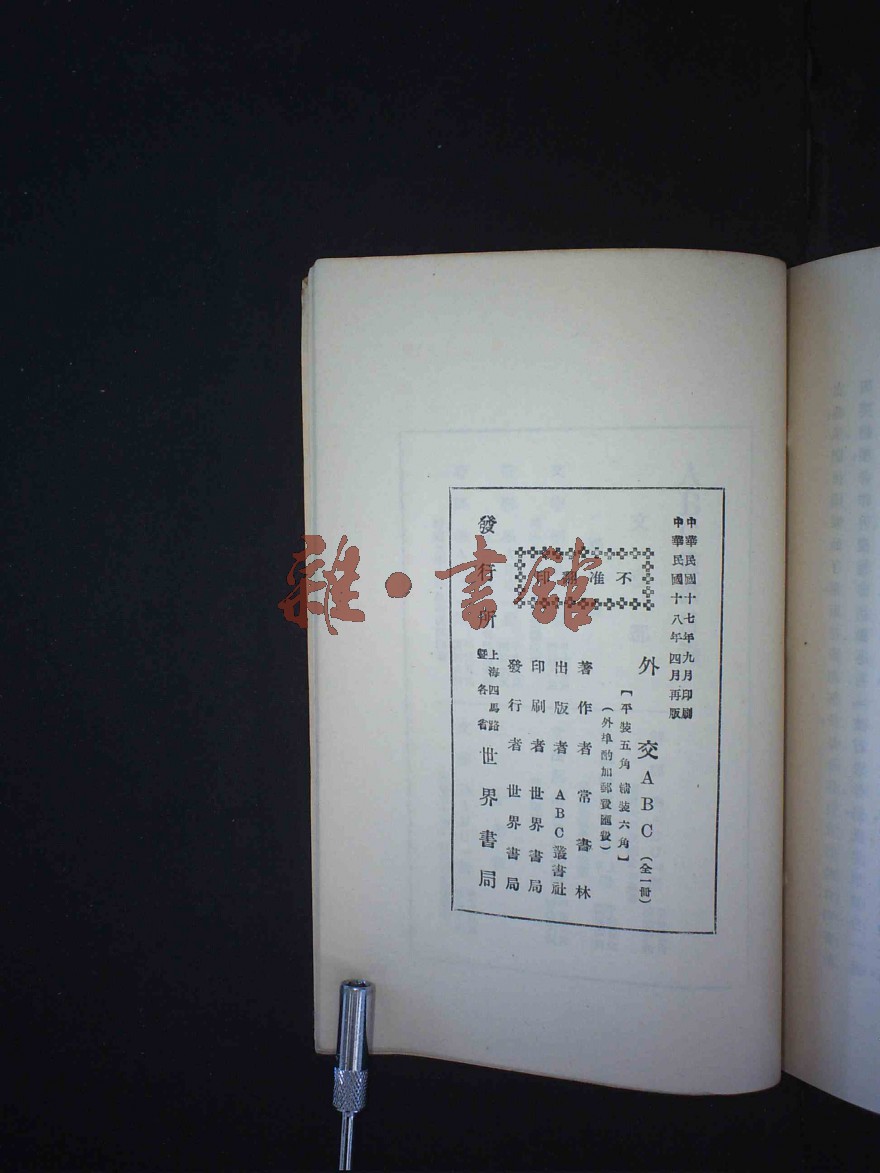 中華民國十七年九月印刷
中華民國十八年四月再版
外交ABC（全一冊）
【平裝五角 精裝六角】
（外埠酌加郵費匯費）
不准翻印
著作者 常書林
出版者 ABC叢書社
印刷者 世界書局
發行者 世界書局
發行所 上海四馬路暨各省 世界書局
雜·書館